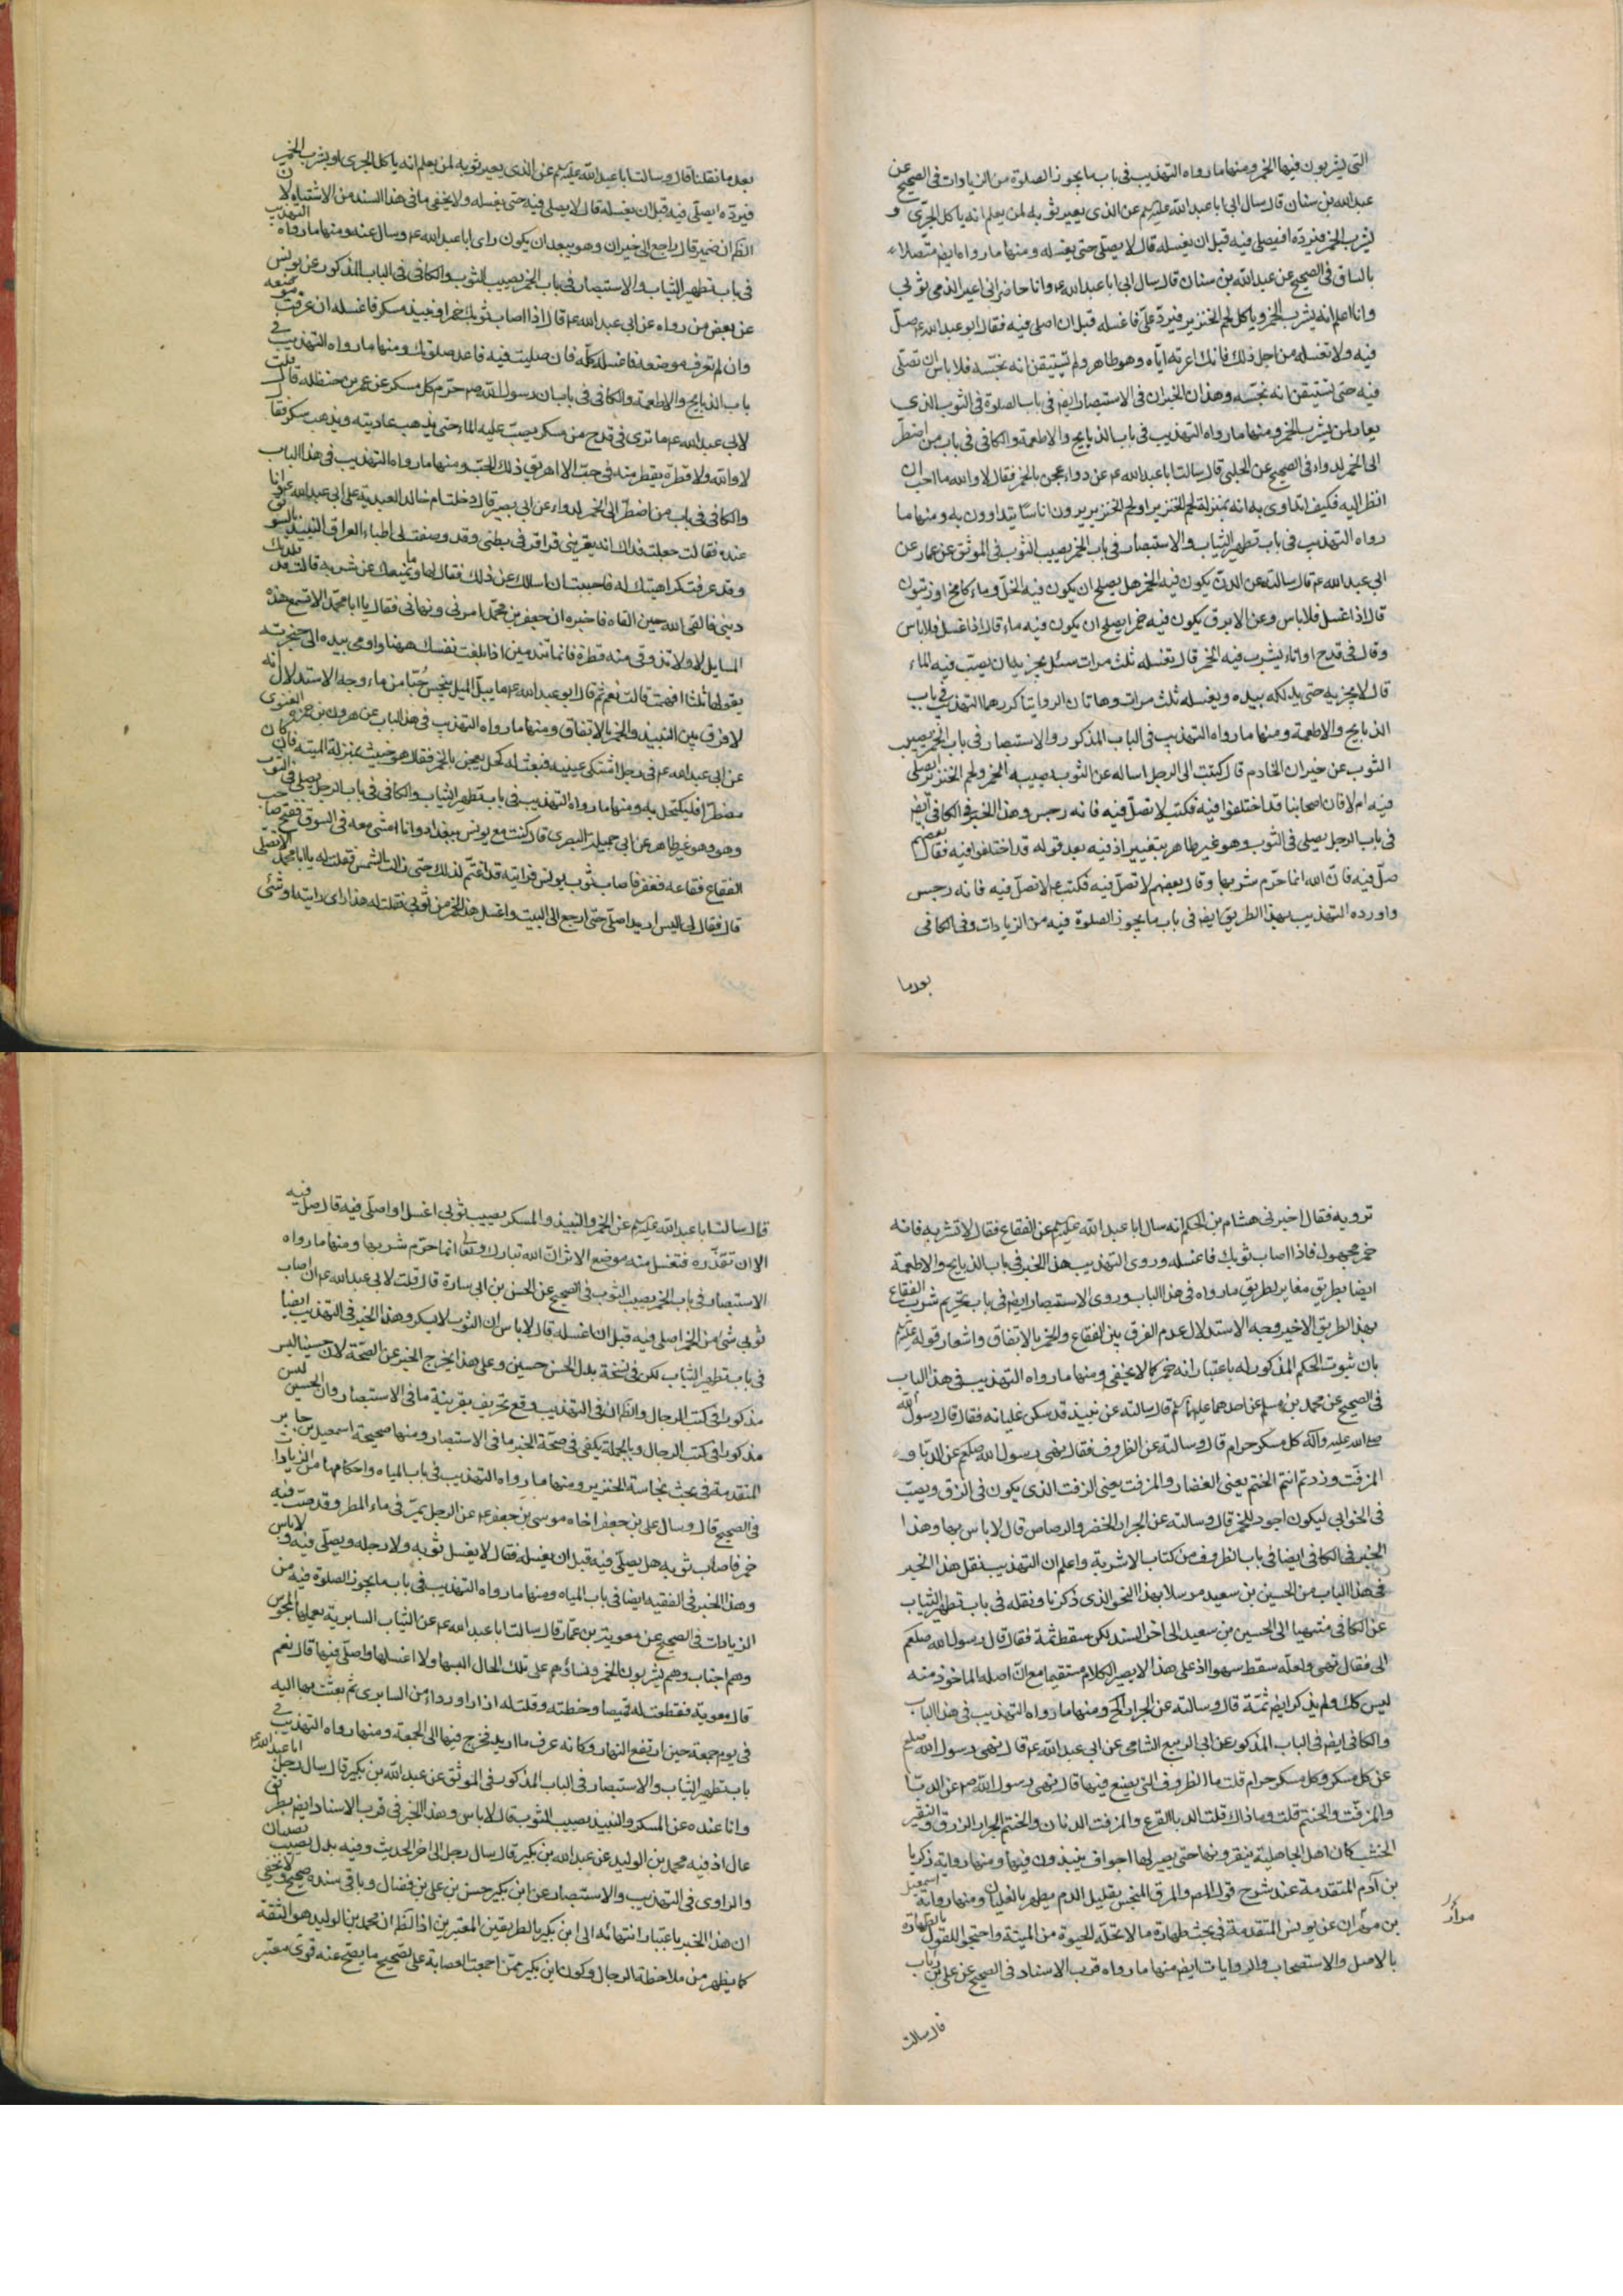 التى يشربون فيها الخمر ومنها ما رواه التهذيب فى باب ما يجوز الصلوة من الزيادات فى الصحيح عن
عبد الله بن سنان قال سال ابى ابا عبد الله عليه السلم عن الذى يعير ثوبه لمن يعلم انه ياكل الجرّى و
يشرب الخمر فيردّه افيصلى فيه قبل ان يغسله قال لا يصلى حتى يغسله ومنها ما رواه ايض متصلا
بالسابق فى الصحيح عن عبد الله بن سنان قال سال ابى ابا عبد الله ع وانا حاضر انى اعير الذمى ثوبى
وانا اعلم انه يشرب الخمر وياكل لحم الخنزير فيردّ علىّ فاغسله قبل ان اصلى فيه فقال ابو عبد الله ع صلّ
فيه ولا تغسله من اجل ذلك فانك اعرته اياه وهو طاهر ولم تستيقن انه نجّسه فلا باس ان تصلى
فيه حتى تستيقن انه نجّسه وهذان الخبران فى الاستبصار ايض فى باب الصلوة فى الثوب الذى
يعار لمن يشرب الخمر ومنها ما رواه التهذيب فى باب الذبايح والاطعمة والكافى فى باب من اضطرّ
الى الخمر لدواء فى الصحيح عن الحلبى قال سالت ابا عبد الله ع عن دواء عجن بالخمر فقال لا والله ما احب ان
انظر اليه فكيف اتداوى به انه بمنزلة شحم الخنزير او لحم الخنزير يرون اناسًا يتداوون به ومنها ما
رواه التهذيب فى باب تطهير الثياب والاستبصار فى باب الخمر يصيب الثوب فى الموثق عن عمار عن
ابى عبد الله ع قال سالته عن الدنّ يكون فيه الخمر هل يصلح ان يكون فيه الخلّ وماء كامخ او زيتون
قال اذا غسل فلا باس وعن الابرق يكون فيه خمر ايصلح ان يكون فيه ماء قال اذا غسل فلا باس
وقال فى قدح او اناء يشرب فيه الخمر قال تغسله ثلث مرات سئل يجزيه ان يصبّ فيه الماء
قال لا يجزيه حتى يدلكه بيده ويغسله ثلث مرات وهاتان الروايتان كررهما التهذيب فى باب
الذبايح والاطعمة ومنها ما رواه التهذيب فى الباب المذكور والاستبصار فى باب الخمر يصيب
الثوب عن خيران الخادم قال كتبت الى الرجل اساله عن الثوب يصيبه الخمر ولحم الخنزير ايصلى
فيه ام لا فان اصحابنا قد اختلفوا فيه فكتب لا تصلّ فيه فانه رجس وهذا الخبر فى الكافى ايض
فى باب الرجل يصلى فى الثوب وهو غير طاهر بتغيير اذ فيه بعد قوله قد اختلفوا فيه فقال بعضهم
صلّ فيه فانّ الله انما حرّم شربها وقال بعضهم لا تصلّ فيه فكتب ع لا تصلّ فيه فانه رجس
واورده التهذيب بهذا الطريق ايض فى باب ما يجوز الصلوة فيه من الزيادات وفى الكافى
بعد ما
بعد ما نقلنا قال وسالت ابا عبد الله عليه السلم عن الذى يعير ثوبه لمن يعلم انه ياكل الجرى او يشرب الخمر
فيردّه ايصلّى فيه قبل ان يغسله قال لا يصلى فيه حتى يغسله ولا يخفى ما فى هذا السند من الاشتباه لان
الظّ ان ضمير قال راجع الى خيران وهو يبعد ان يكون راى ابا عبد الله ع وسال عنه ومنها ما رواه التهذيب
فى باب تطهير الثياب والاستبصار فى باب الخمر يصيب الثوب والكافى فى الباب المذكور عن يونس
عن بعض من رواه عن ابى عبد الله ع قال اذا اصاب ثوبك خمر او نبيذ مسكر فاغسله ان عرفت موضعه
وان لم تعرف موضعه فاغسله كلّه فان صليت فيه فاعد صلوتك ومنها ما رواه التهذيب فى
باب الذبايح والاطعمة والكافى فى باب ان رسول الله ص حرّم كل مسكر عن عمر بن حنظلة قال قلت
لابى عبد الله ع ما ترى فى قدح من مسكر يصبّ عليه الماء حتى يذهب عاديته ويذهب سكره فقال
لا والله ولا قطرة يقطر منه فى حبّ الا اهريق ذلك الحبّ ومنها ما رواه التهذيب فى هذا الباب
والكافى فى باب من اضطرّ الى الخمر لدواء عن ابى بصير قال دخلت ام خالد العبدية على ابى عبد الله ع وانا
عنده فقالت جعلت فداك انه يعترينى قراقر فى بطنى وقد وصفت لى اطباء العراق النبيذ بالسويق
وقد عرفت كراهيتك له فاحببت ان اسالك عن ذلك فقال لها وما يمنعك عن شربه قالت قد قلدتك
دينى فالقى الله حين القاه فاخبره ان جعفر بن محمد امرنى ونهانى فقال يا ابا محمد الا تسمع هذه
المسايل لا ولا تذوقى منه قطرة فانما تندمين اذا بلغت نفسك ههنا واومى بيده الى حنجرته
يقولها ثلثا افهمت قالت نعم ثم قال ابو عبد الله ع ما يبلّ الميل ينجس حُبّا من ماء وجه الاستدلال انه
لا فرق بين النبيذ والخمر بالاتفاق ومنها ما رواه التهذيب فى هذا الباب عن هرون بن حمزة الغنوى
عن ابى عبد الله ع فى رجل اشتكى عينيه فنعت له كحل يعجن بالخمر فقال هو خبيث بمنزلة الميتة فان كان
مضطرّا فليكتحل به ومنها ما رواه التهذيب فى باب تطهير الثياب والكافى فى باب الرجل يصلى فى الثوب
وهو وهو غير طاهر عن ابى جميلة البصرى قال كنت مع يونس ببغداد وانا امشى معه فى السوق ففتح صاحب
الفقاع فقاعه فقفز فاصاب ثوب يونس فرايته قد اغتم لذلك حتى زالت الشمس فقلت له يا ابا محمد الا تصلّى
قال فقال لى اليس اريد اصلّى حتى ارجع الى البيت واغسل هذا الخمر من ثوبى فقلت له هذا راى رايته او شئ
ترويه فقال اخبرنى هشام بن الحكم انه سال ابا عبد الله عليه السلم عن الفقاع فقال لا تشربه فانه
خمر مجهول فاذا اصاب ثوبك فاغسله وروى التهذيب هذا الخبر فى باب الذبايح والاطعمة
ايضا بطريق مغاير لطريق ما رواه فى هذا الباب وروى الاستبصار ايض فى باب تحريم شرب الفقاع
بهذا الطريق الاخير وجه الاستدلال عدم الفرق بين الفقاع والخمر بالاتفاق واشعار قوله عليه السلم
بان ثبوت الحكم المذكور له باعتبار انه خمر كما لا يخفى ومنها ما رواه التهذيب فى هذا الباب
فى الصحيح عن محمد بن مسلم عن احدهما عليهما السلم قال سالته عن نبيذ قد سكن غليانه فقال قال رسول الله
صلى الله عليه وآله كل مسكر حرام قال وسالته عن الظروف فقال نهى رسول الله صلعم عن الدبّا و
المزفّت وزدتم انتم الختم يعنى الغضار والمزفت يعنى الزفت الذى يكون فى الزق ويصبّ
فى الخوابى ليكون اجود للخمر قال وسالته عن الجرار الخضر والرصاص قال لا باس بها وهذا
الخبر فى الكافى ايضا فى باب الظروف من كتاب الاشربة واعلم ان التهذيب نقل هذا الخبر
فى هذا الباب من الحسين بن سعيد مرسلا بهذا النحو الذى ذكرنا ونقله فى باب تطهير الثياب
عن الكافى منتهيا الى الحسين بن سعيد الى اخر السند لكن سقط ثمة فقال قال رسول الله صلعم
الى فقال نهى ولعلّه سقط سهوا اذ على هذا لا يصير الكلام مستقيما مع انّ اصله الماخوذ منه
ليس كك ولم يذكر ايض ثمّة قال وسالته عن الجرار الخ ومنها ما رواه التهذيب فى هذا الباب
والكافى ايض فى الباب المذكور عن ابى الربيع الشامى عن ابى عبد الله ع قال نهى رسول الله صلعم
عن كل مسكر وكل مسكر حرام قلت فالظروف التى يصنع فيها قال نهى رسول الله ص عن الدبّا
والمزفّت والحنتم قلت وما ذاك قلت الدبا القرع والمزفت الدنان والحنتم الجرار الزرق والنقير
الخشب كان اهل الجاهلية ينقرونها حتى يصير لها اجواف ينبذون فيها ومنها رواية زكريا
بن آدم المتقدمة عند شرح قول المص والمرق المنجّس بقليل الدم يطهر بالغليان ومنها رواية اسمعيل
بن مرّان عن يونس المتقدمة فى بحث طهارة ما لا تحلّه الحيوة من الميتة واحتجوا للقول بالطهارة
بالاصل والاستصحاب والروايات ايض منها ما رواه قرب الاسناد فى الصحيح عن على بن رياب
قال سالت
قال سالت ابا عبد الله عليه السلم عن الخمر والنبيذ والمسكر يصيب ثوبى اغسله او اصلّى فيه قال صلّ فيه
الا ان تقذّره فتغسل منه موضع الاثر انّ الله تبارك وتعالى انما حرّم شربها ومنها ما رواه
الاستبصار فى باب الخمر يصيب الثوب فى الصحيح عن الحسن بن ابى سارة قال قلت لابى عبد الله ع ان اصاب
ثوبى شئ من الخمر اصلى فيه قبل ان اغسله قال لا باس ان الثوب لا يسكر وهذا الخبر فى التهذيب ايضا
فى باب تطهير الثياب لكن فى نسخة بدل الحسن حسين وعلى هذا يخرج الخبر عن الصحّة لان حسينا ليس
مذكورا فى كتب الرجال والظ انّ فى التهذيب وقع تحريف بقرينة ما فى الاستبصار وان الحسين ليس
مذكورا فى كتب الرجال وبالجملة يكفى فى صحّة الخبر ما فى الاستبصار ومنها صحيحة اسمعيل بن جابر
المتقدمة فى بحث نجاسة الخنزير ومنها ما رواه التهذيب فى باب المياه واحكامها من الزيادات
فى الصحيح قال وسال على بن جعفر اخاه موسى بن جعفر ع عن الرجل يمرّ فى ماء المطر وقد صبّ فيه
خمر فاصاب ثوبه هل يصلّى فيه قبل ان يغسله فقال لا يغسل ثوبه ولا رجله ويصلّى فيه ولا باس
وهذا الخبر فى الفقيه ايضا فى باب المياه ومنها ما رواه التهذيب فى باب ما يجوز الصلوة فيه من
الزيادات فى الصحيح عن معوية بن عمّار قال سالت ابا عبد الله ع عن الثياب السابرية يعملها المجوس
وهم اجناب وهم يشربون الخمر ونساؤهم على تلك الحال البسها ولا اغسلها واصلّى فيها قال نعم
قال معوية فقطعت له قميصا وخطته وقلت له ازار او رداء من السابرى ثم بعثت بها اليه
فى يوم جمعة حين ارتفع النهار وكانه عرف ما اريد فخرج فيها الى الجمعة ومنها ما رواه التهذيب فى
باب تطهير الثياب والاستبصار فى الباب المذكور فى الموثق عن عبد الله بن بكير قال سال رجل ابا عبد الله ع
وانا عنده عن المسكر والنبيذ يصيب الثوب قال لا باس وهذا الخبر فى قرب الاسناد ايض بطريق
عال اذ فيه محمد بن الوليد عن عبد الله بن بكير قال سال رجل الى اخر الحديث وفيه بدل يصيب يصيبان
والراوى فى التهذيب والاستبصار عن ابن بكير حسن بن على بن فضال وباقى سنده صحيح ولا يخفى
ان هذا الخبر باعتبار انتهائه الى ابن بكير بالطريقين المعتبرين اذ الظ ان محمد بن الوليد هو الثقة
كما يظهر من ملاحظة الرجال وكون ابن بكير ممّن اجمعت العصابة على تصحيح ما يصحّ عنه قوىّ معتبر